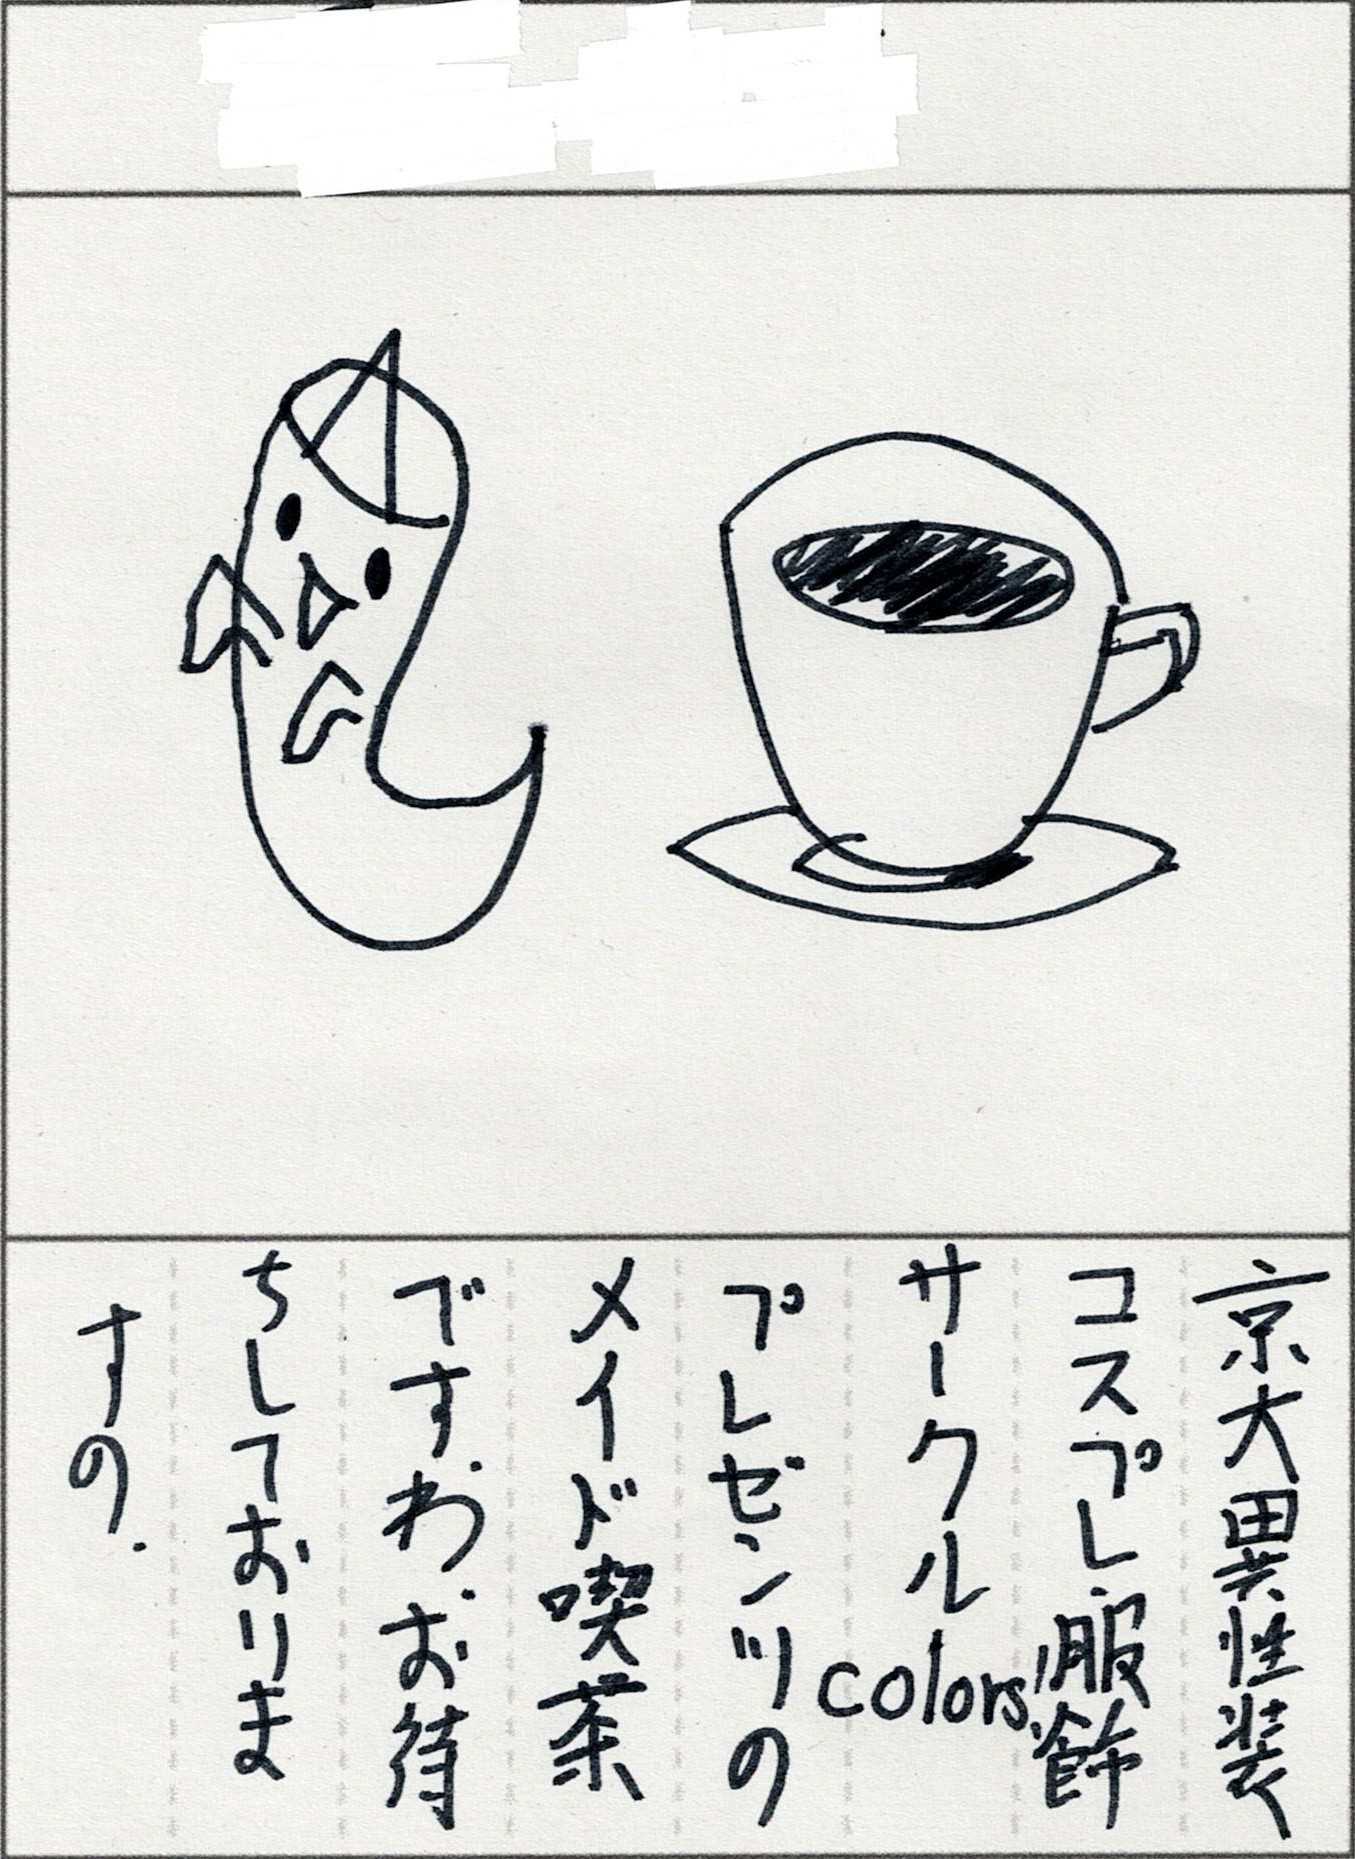 京大異性装
コスプレ・服飾
サークルcolors!
プレゼンツの
メイド喫茶
ですわ.お待
ちしておりま
すの.